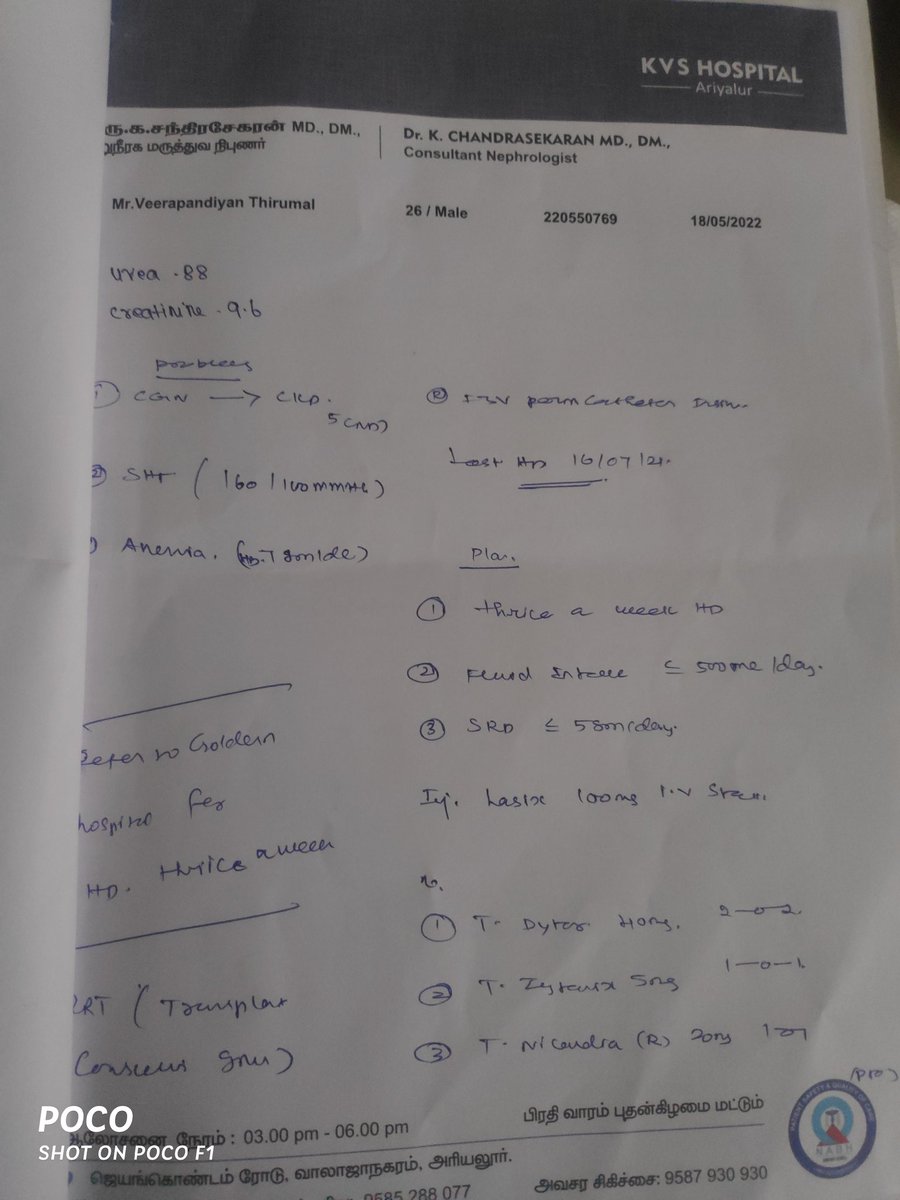 KVS HOSPITAL
Ariyalur
ரு.க.சந்திரசேகரன் MD., DM.,
நீரக மருத்துவ நிபுணர்
Dr. K. CHANDRASEKARAN MD., DM.,
Consultant Nephrologist
Mr.Veerapandiyan Thirumal 26 / Male 220550769 18/05/2022
urea - 88
creatinine - 9.6
① CGN → CKD.
5 (ND)
② SHT ( 160 / 100mmHg )
Anemia.
Refer to Goldern
hospital for
HD. thrice a week
RRT ( Transplant
Last HD 16/07/21.
Plan.
① thrice a week HD
② Fluid Intake ≤ 500ml /day.
③ SRD ≤ 5gm/day.
Inj. Lasix 100mg I.V Stat.
① T. Dytor 2-0-2.
② T. 5mg 1-0-1.
③ T. Nicardia (R) 20mg
ஆலோசனை நேரம் : 03.00 pm - 06.00 pm
பிரதி வாரம் புதன்கிழமை மட்டும்
ஜெயங்கொண்டம் ரோடு, வாலாஜாநகரம், அரியலூர்.
9585 288 077
அவசர சிகிச்சை: 9587 930 930
NABH
POCO
SHOT ON POCO F1